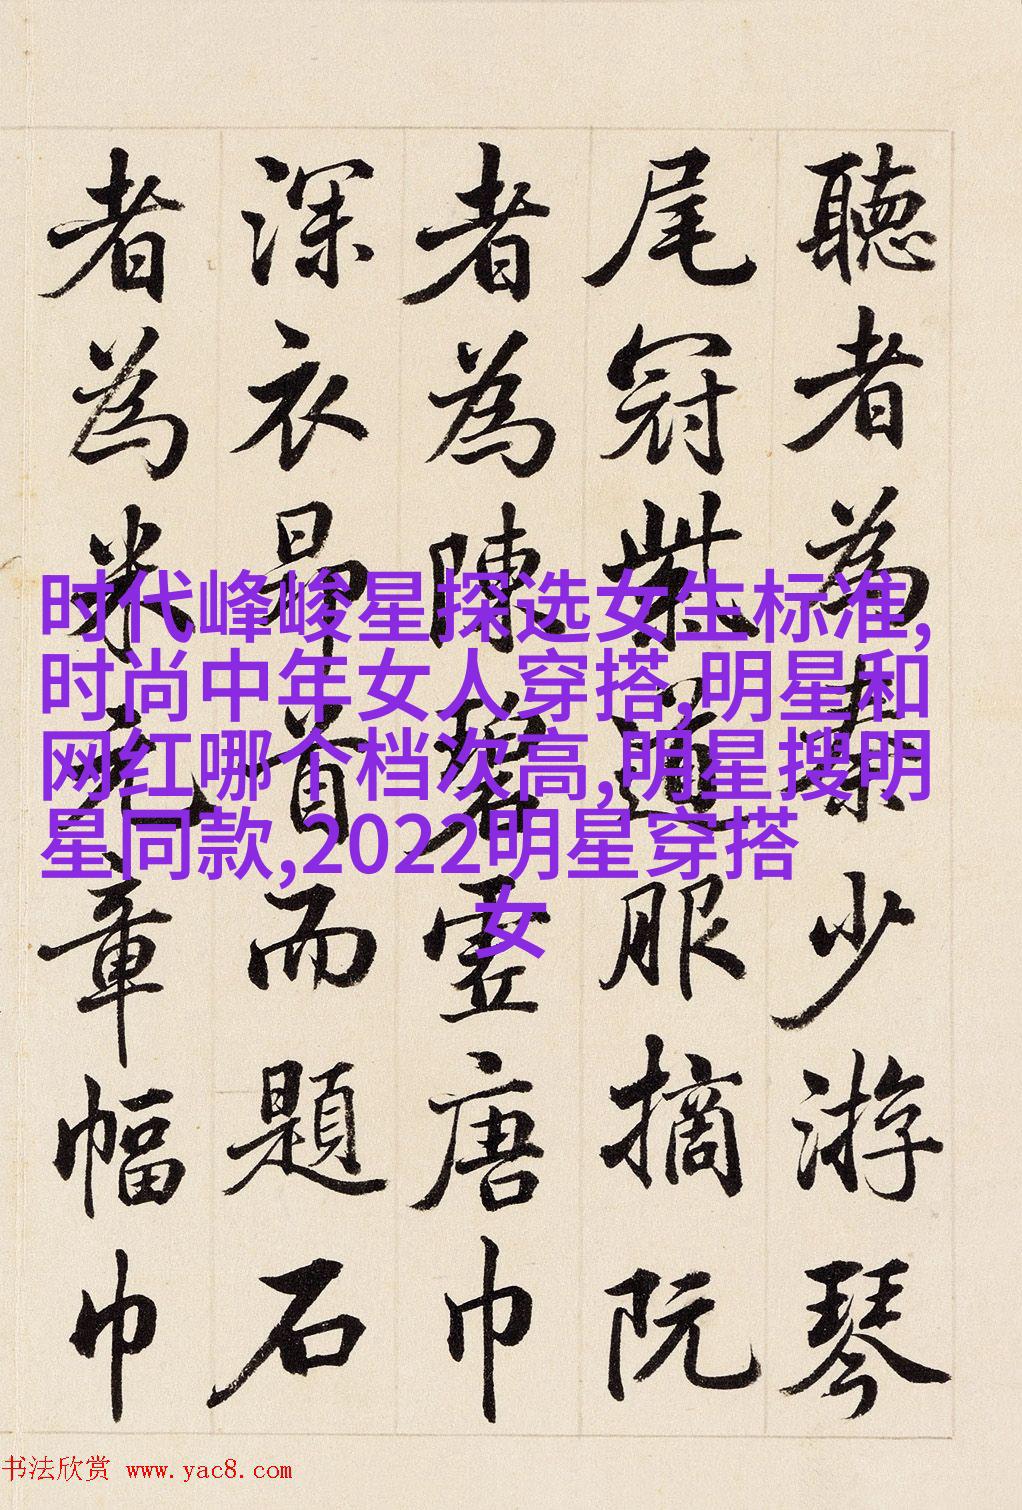 聽者為秦少游琴
尾冠紫道服摘阮
者為陳碧虛唐巾
深衣昂首而題石
者為米元章幅巾
时代峰峻星探选女生标准,
时尚中年女人穿搭,明星和
网红哪个档次高,明星搜明
星同款,2022明星穿搭
女
书法欣赏 www.yac8.com